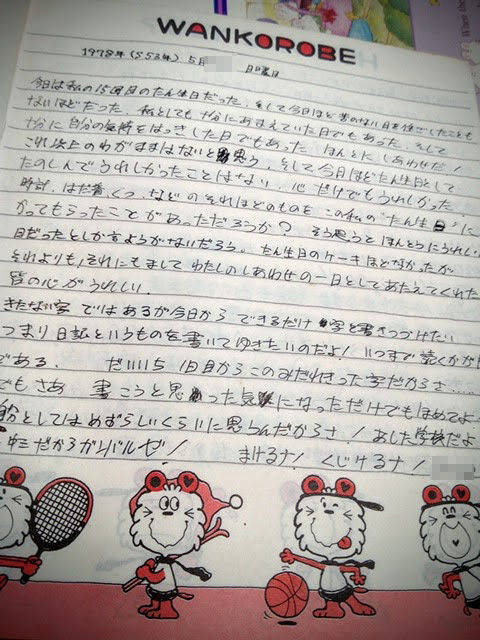 WANKOROBE
1978年(S53年) 5月 日曜日
今日は私の15回目のたん生日だった。そして今日ほど
ないほどだった 私としても十分にあまえていた日でもあった そして
十分に自分の気持をはっきした日でもあった ほんとにしあわせだ!
これ以上のわがままはないと思う。そして今日ほどたん生日として
たのしんでうれしかったことはない。心だけでもうれしかった
時計、はだ着、くつ、などの それほどのものを この私の"たん生日"に
かってもらったことがあっただろうか? そう思うとほんとうにうれしい
日だったとしか言ようがないだろう。 たん生日のケーキはどなかったが
それよりも、それにもまして わたしのしあわせの一日としてあたえてくれた
皆の心がうれしい。
きたない字 ではあるが今日から できるだけ 字を書きつづけたい
つまり 日記というものを 書いてゆきたいのだよ! いつまで
である。 だいいち 1日目からこのみだれきった字だからさ.....
でもさあ 書こうと思った気になっただけでもほめてよ
としてはめずらしいくらいに思うんだからさ! あした学校だよ
中3だからガンバルゼ! まけるナ! くじけるナ!